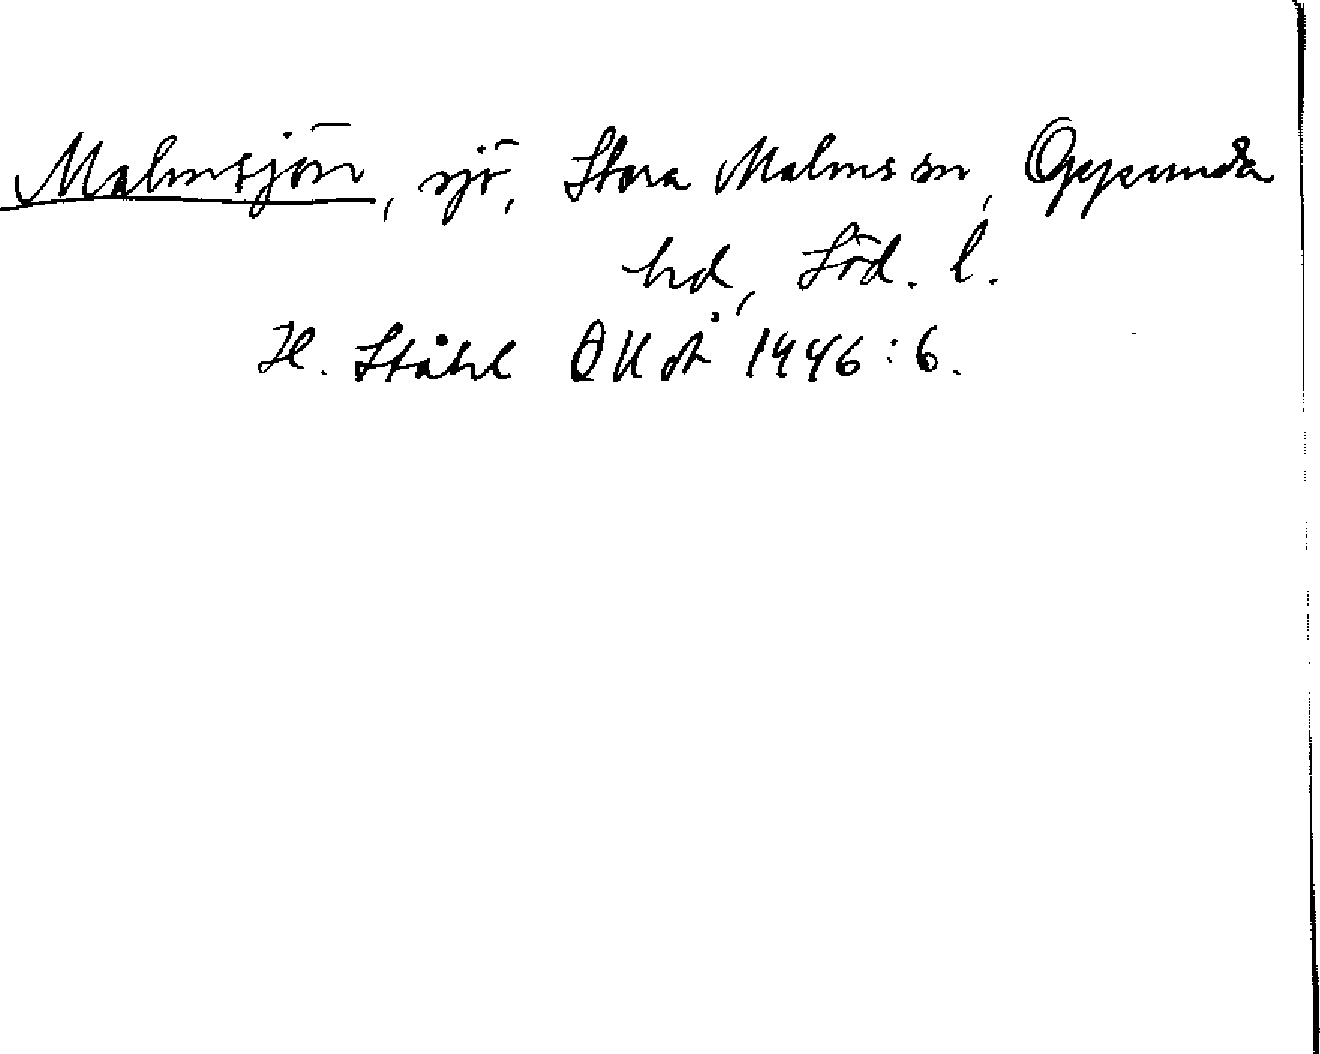 Malmsjön, sjö, Stora Malms sn, Oppunda
hd, Söd. l.
H. Ståhl OUÅ 1946:6.